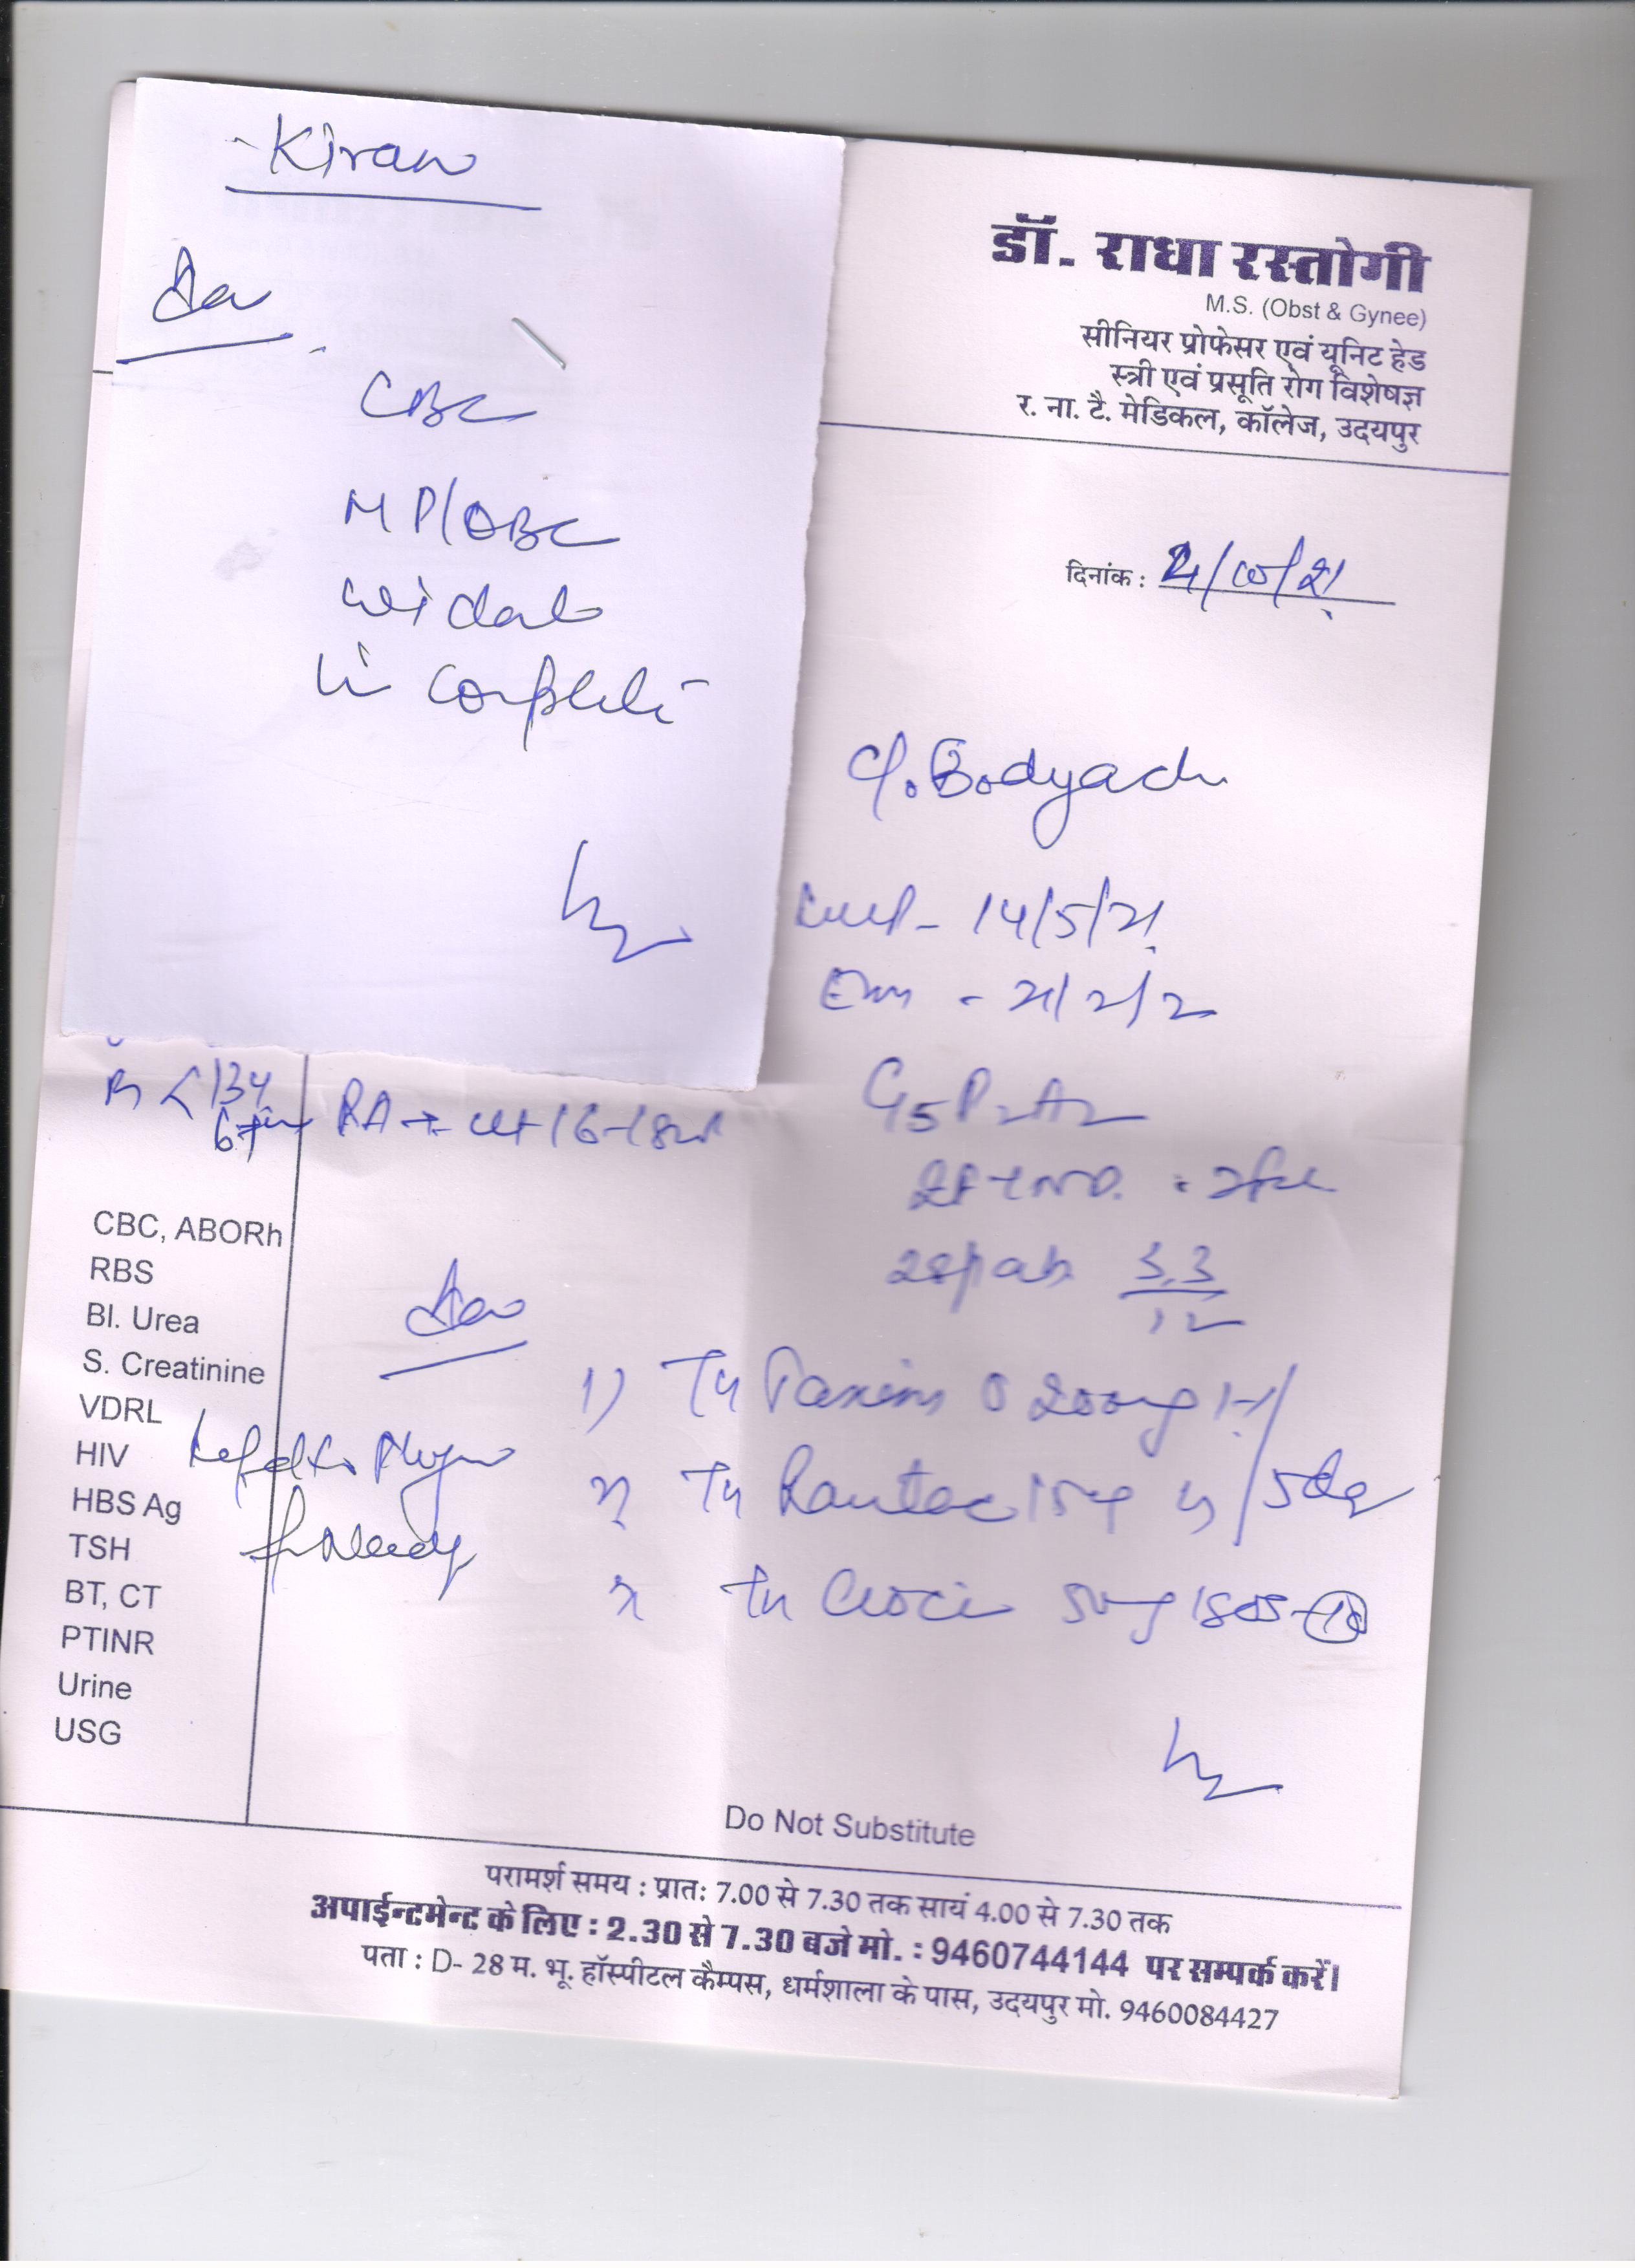 Kiran
Adv
CBC
MP/QBC
widal
Urine Complete
डॉ. राधा रस्तोगी
M.S. (Obst & Gynee)
सीनियर प्रोफेसर एवं यूनिट हेड
स्त्री एवं प्रसूति रोग विशेषज्ञ
र. ना. टै. मेडिकल, कॉलेज, उदयपुर
दिनांक :
C/o Bodyache
LMP - 14/5/21
EDD - 21/2/2
G5P2A2
PA → ut 16-18wk
CBC, ABORh
RBS
Bl. Urea
S. Creatinine
VDRL
HIV
HBS Ag
TSH
BT, CT
PTINR
Urine
USG
Adv
1) Tab Taxim O 200mg
Tab Rantac 5 day
Tab Crocin SOS
Do Not Substitute
परामर्श समय : प्रातः 7.00 से 7.30 तक सायं 4.00 से 7.30 तक
अपाईन्टमेन्ट के लिए : 2.30 से 7.30 बजे मो. : 9460744144 पर सम्पर्क करें।
पता : D- 28 म. भू. हॉस्पीटल कैम्पस, धर्मशाला के पास, उदयपुर मो. 9460084427